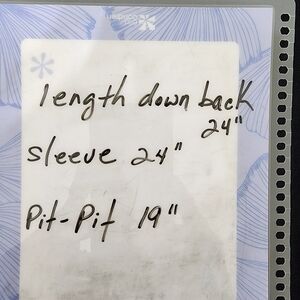 length down back
24"
sleeve 24"
Pit-Pit 19"